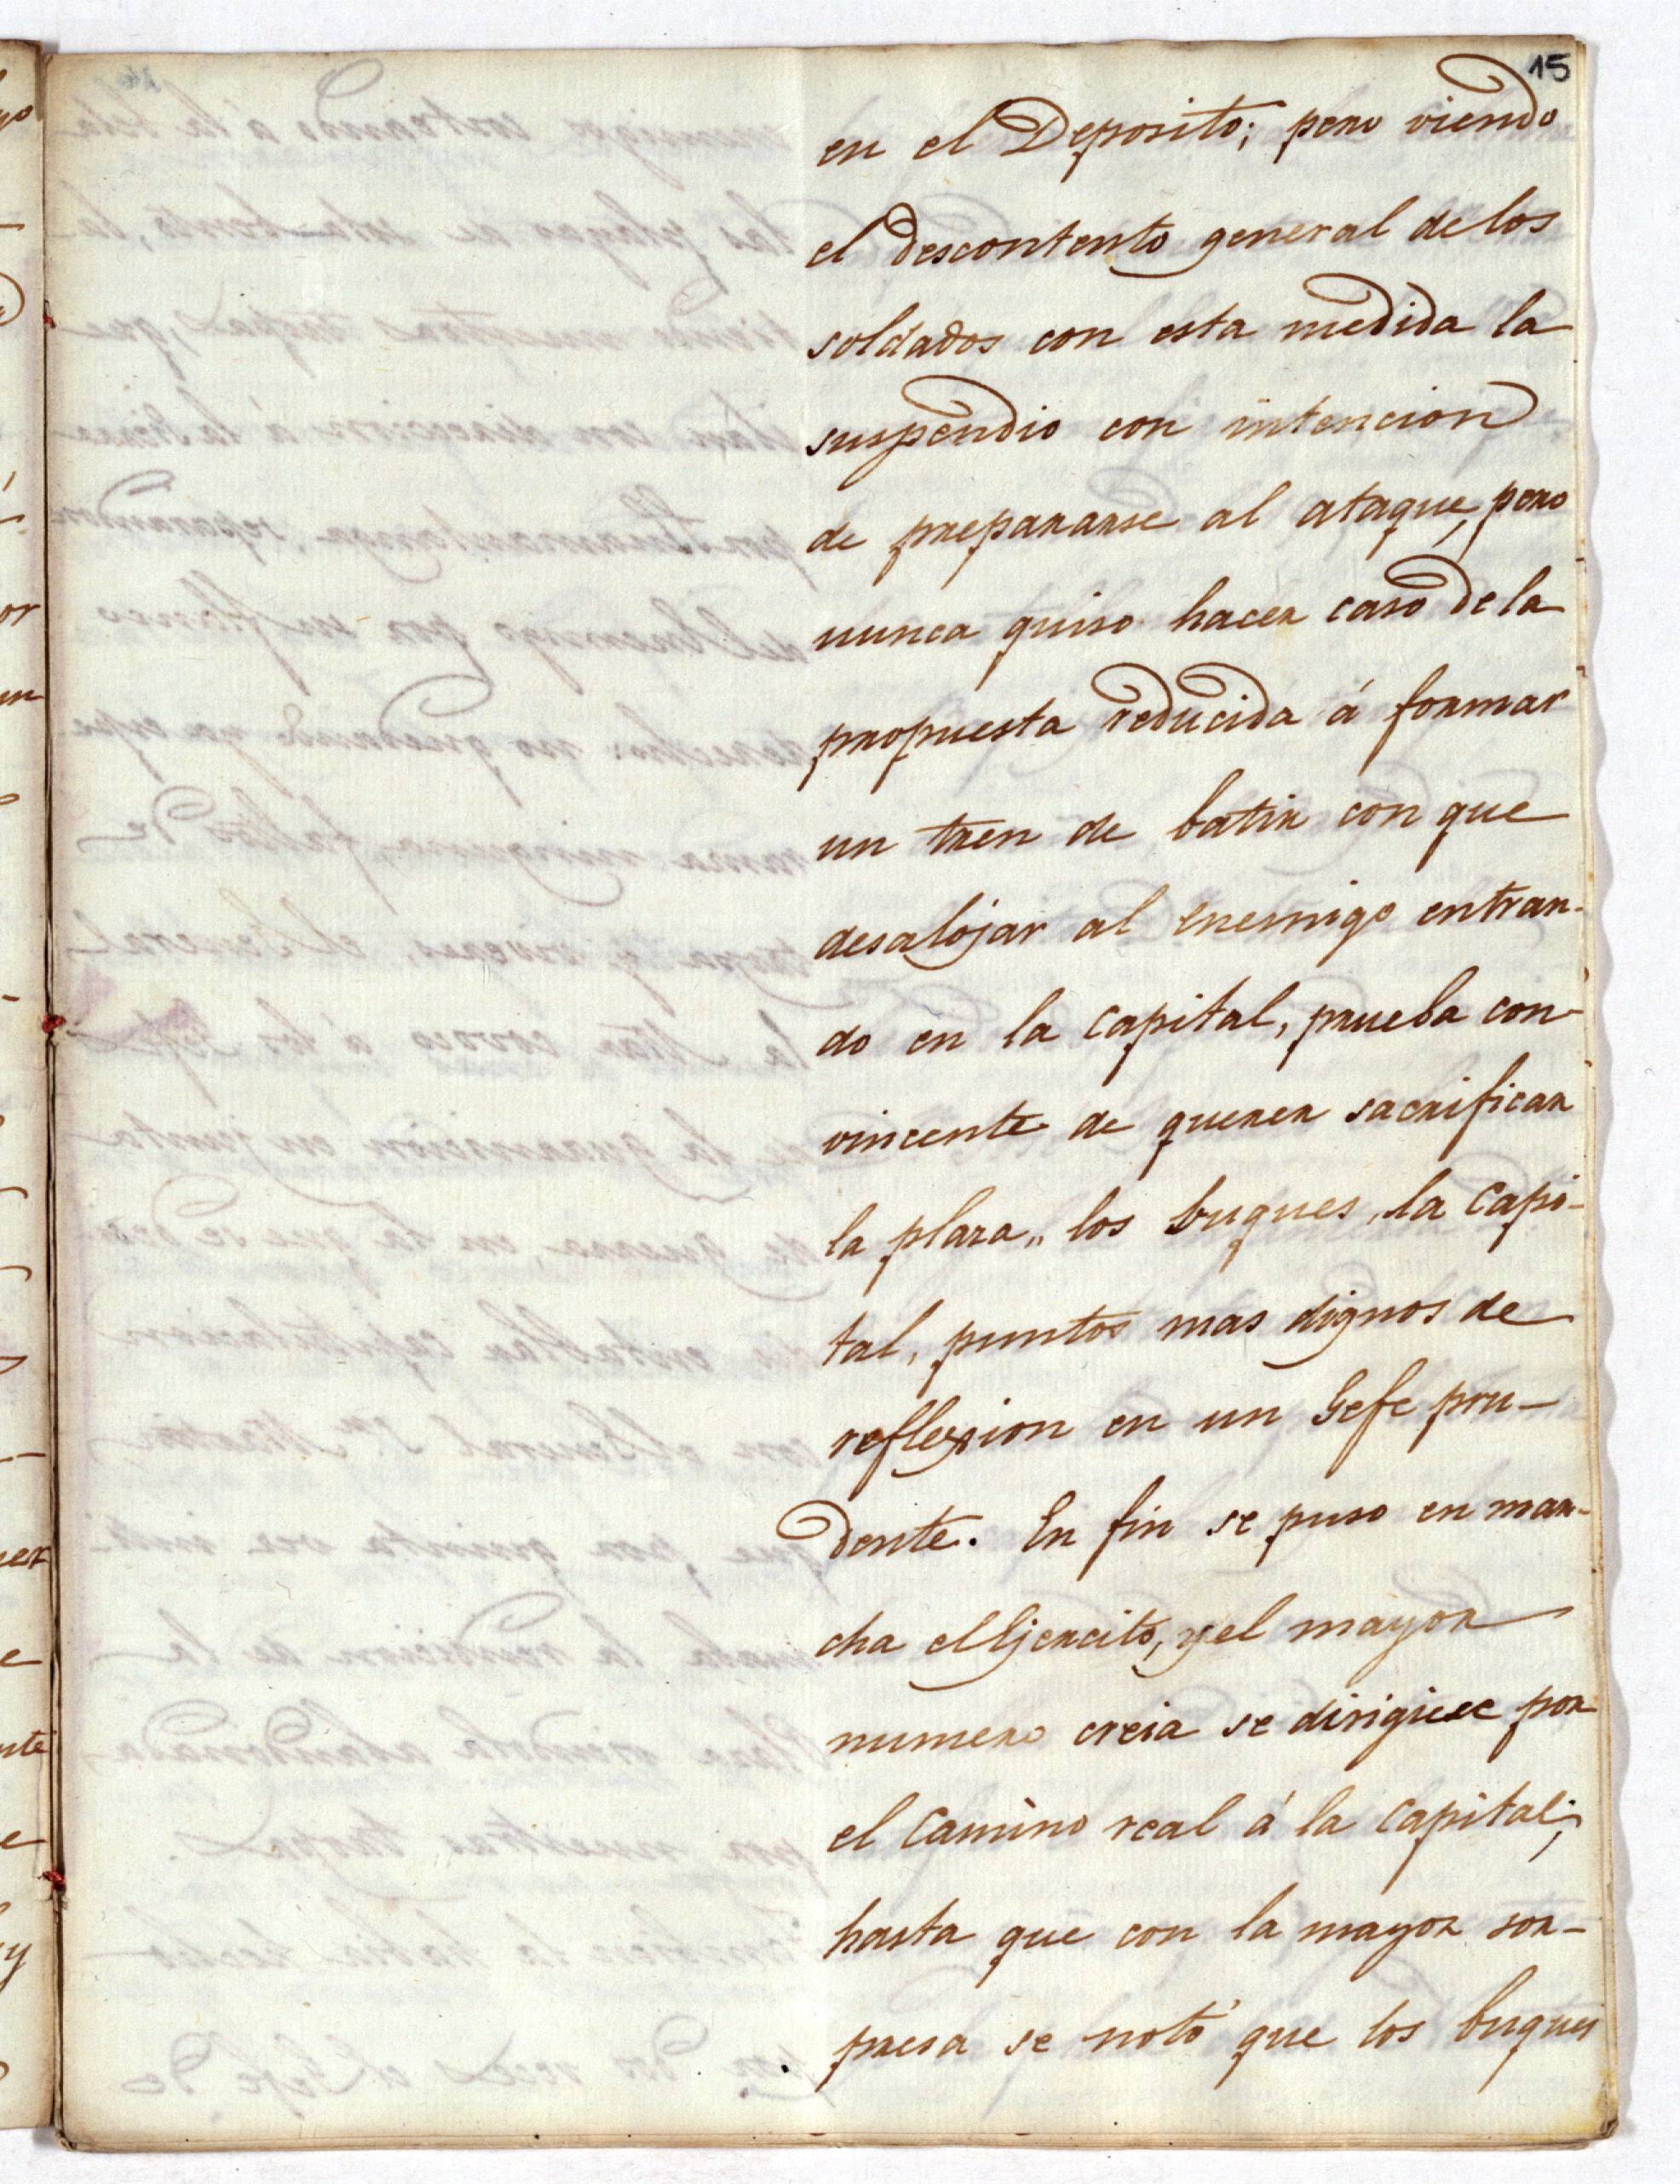 15
en el Deposito; pero viendo
el descontento general de los
soldados con esta medida la
suspendio con intencion
de prepararse al ataque, pero
nunca quiso hacer caso de la
propuesta reducida á formar
un tren de batir con que
desalojar al enemigo entran-
do en la Capital, prueba con-
vincente de querer sacrificar
la plaza,, los buques, la Capi-
tal, puntos mas dignos de
reflexion en un Gefe pru-
dente. En fin se puso en mar-
cha el Ejercito, y el mayor
numero creia se dirigiese por
el Camino real á la Capital;
hasta que con la mayor sor-
presa se notó que los buques